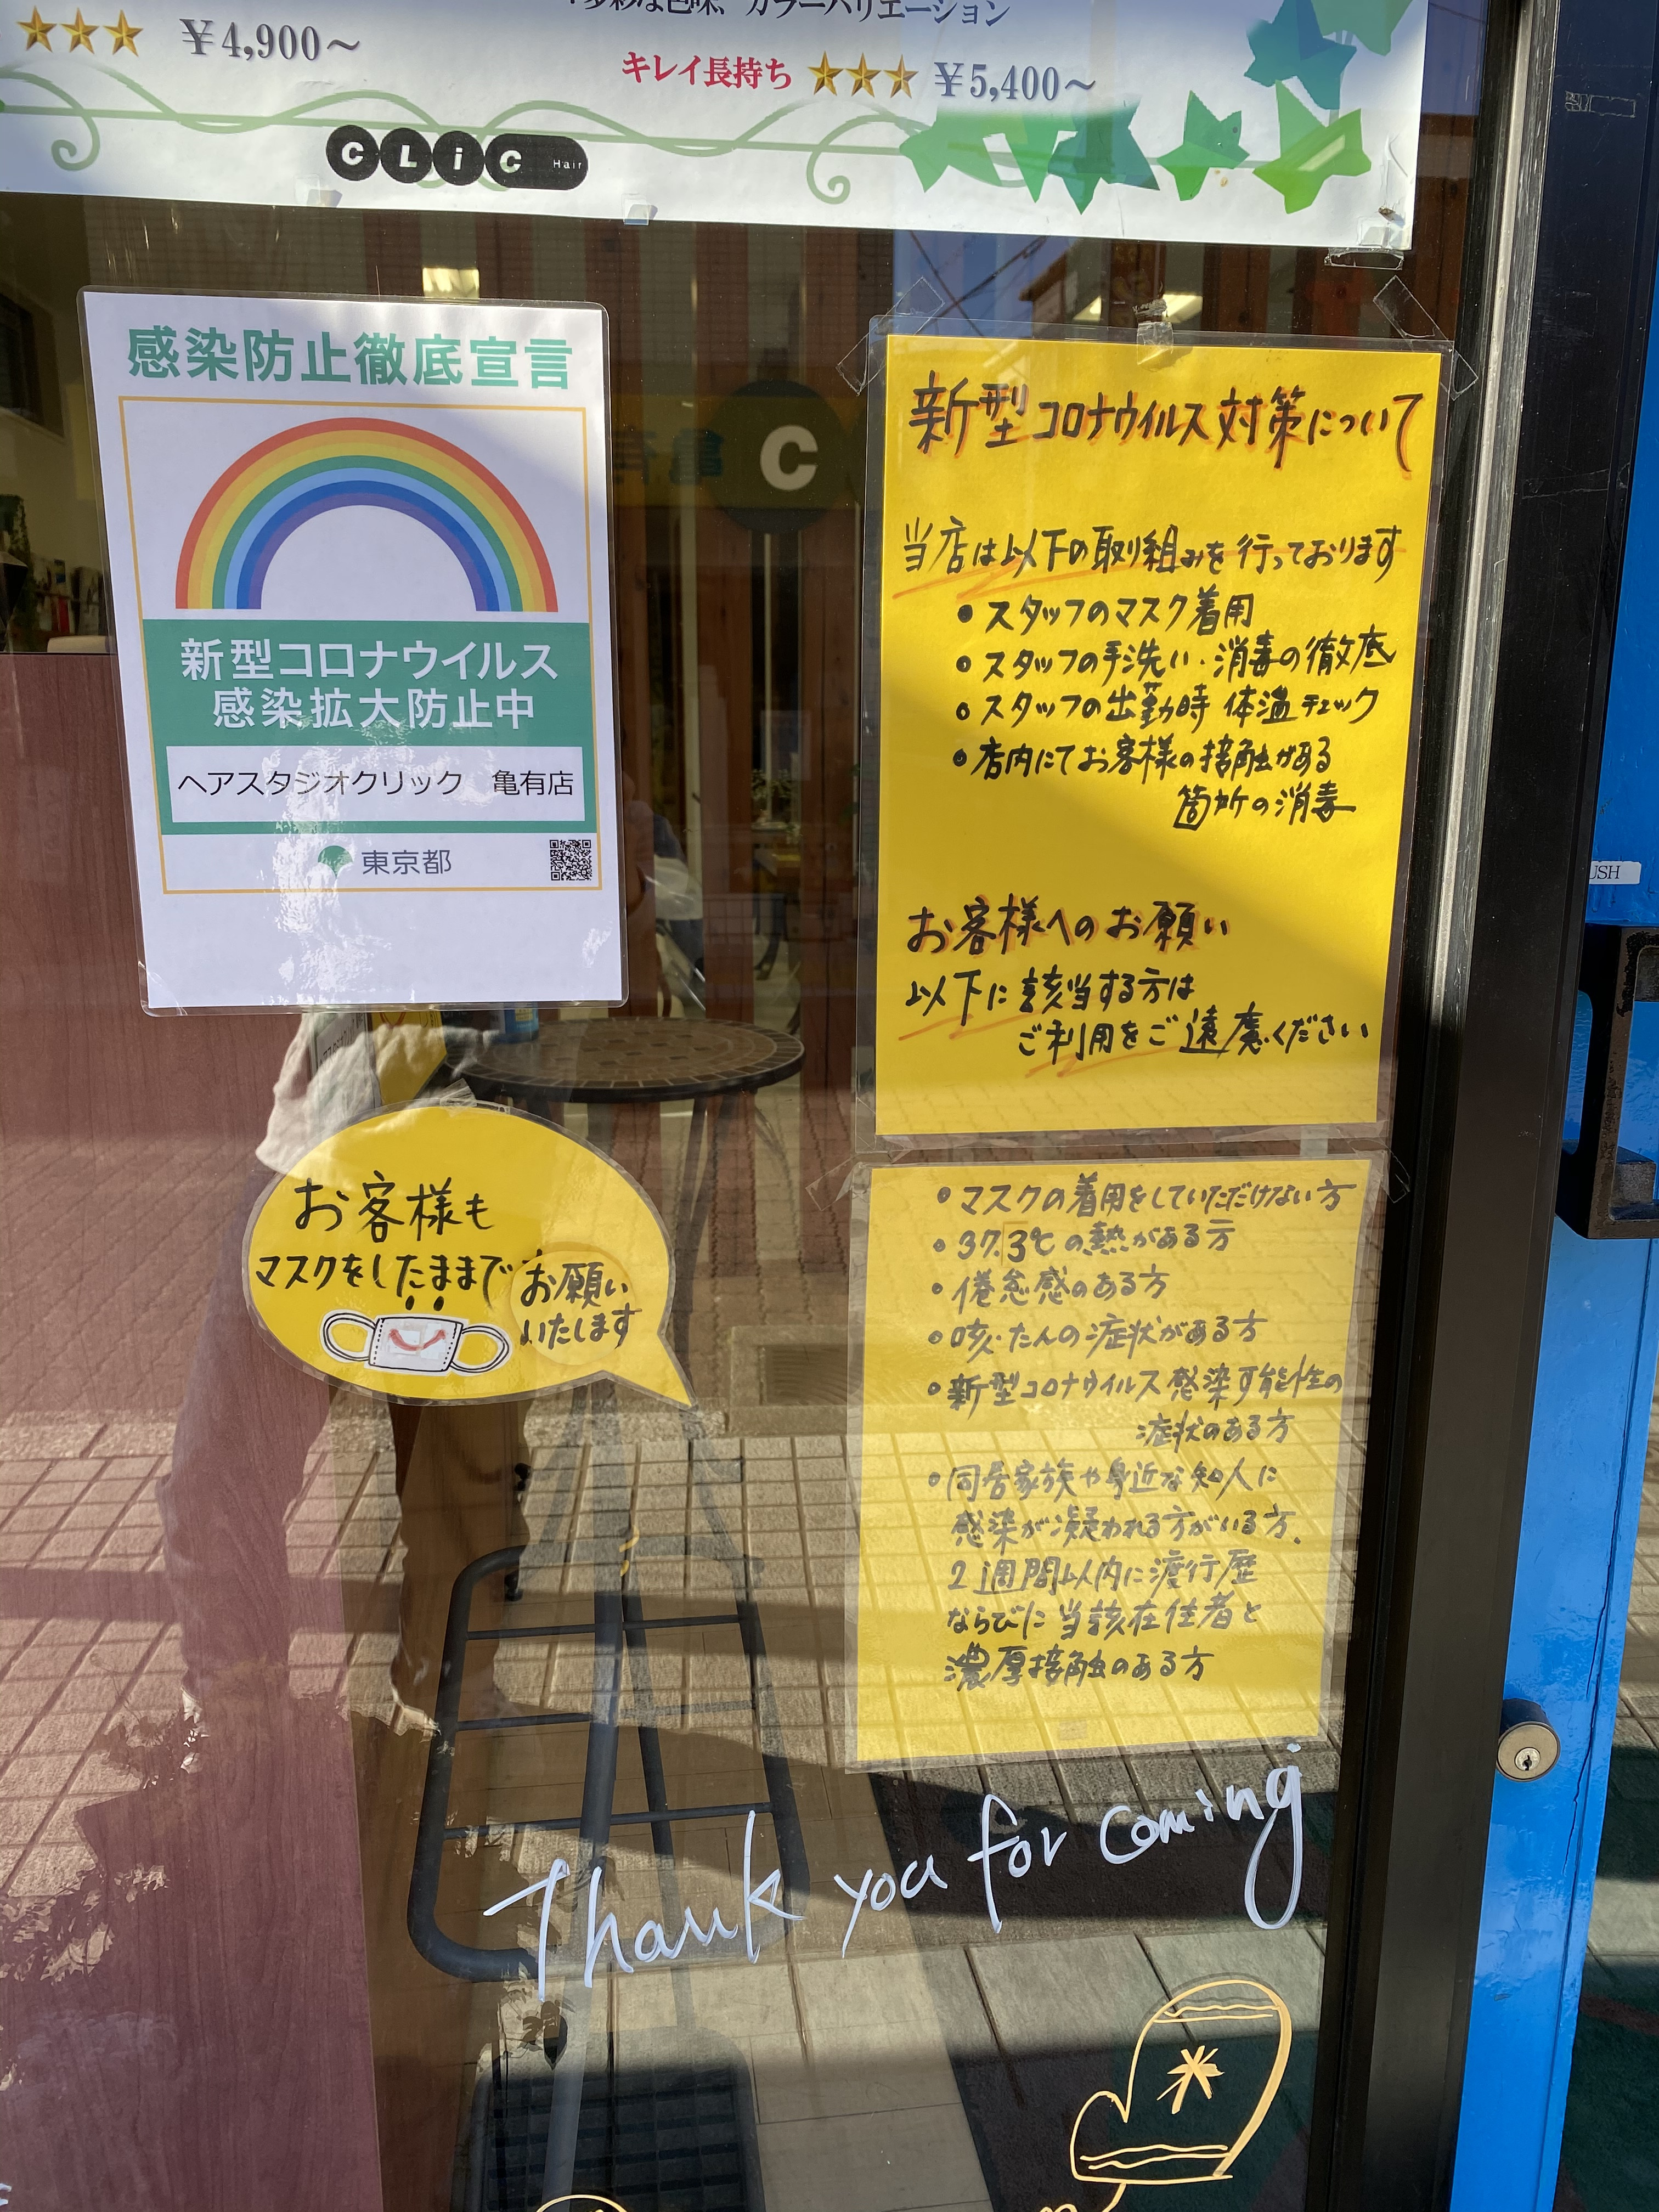 カラーバリエーション
★★★ ¥4,900～
キレイ長持ち ★★★ ¥5,400～
CLiC Hair
感染防止徹底宣言
新型コロナウイルス
感染拡大防止中
ヘアスタジオクリック 亀有店
東京都
C
新型コロナウイルス対策について
当店は以下の取り組みを行っております
・スタッフのマスク着用
・スタッフの手洗い・消毒の徹底
・スタッフの出勤時 体温チェック
・店内にてお客様の接触がある
箇所の消毒
お客様へのお願い
以下に該当する方は
ご利用をご遠慮ください
お客様も
マスクをしたままで
お願い
いたします
・マスクの着用をしていただけない方
・37.3℃の熱がある方
・倦怠感のある方
・咳・たんの症状がある方
・新型コロナウイルス感染可能性の
症状のある方
・同居家族や身近な知人に
感染が疑われる方がいる方、
2週間以内に渡行歴
ならびに当該在住者と
濃厚接触のある方
Thank you for coming